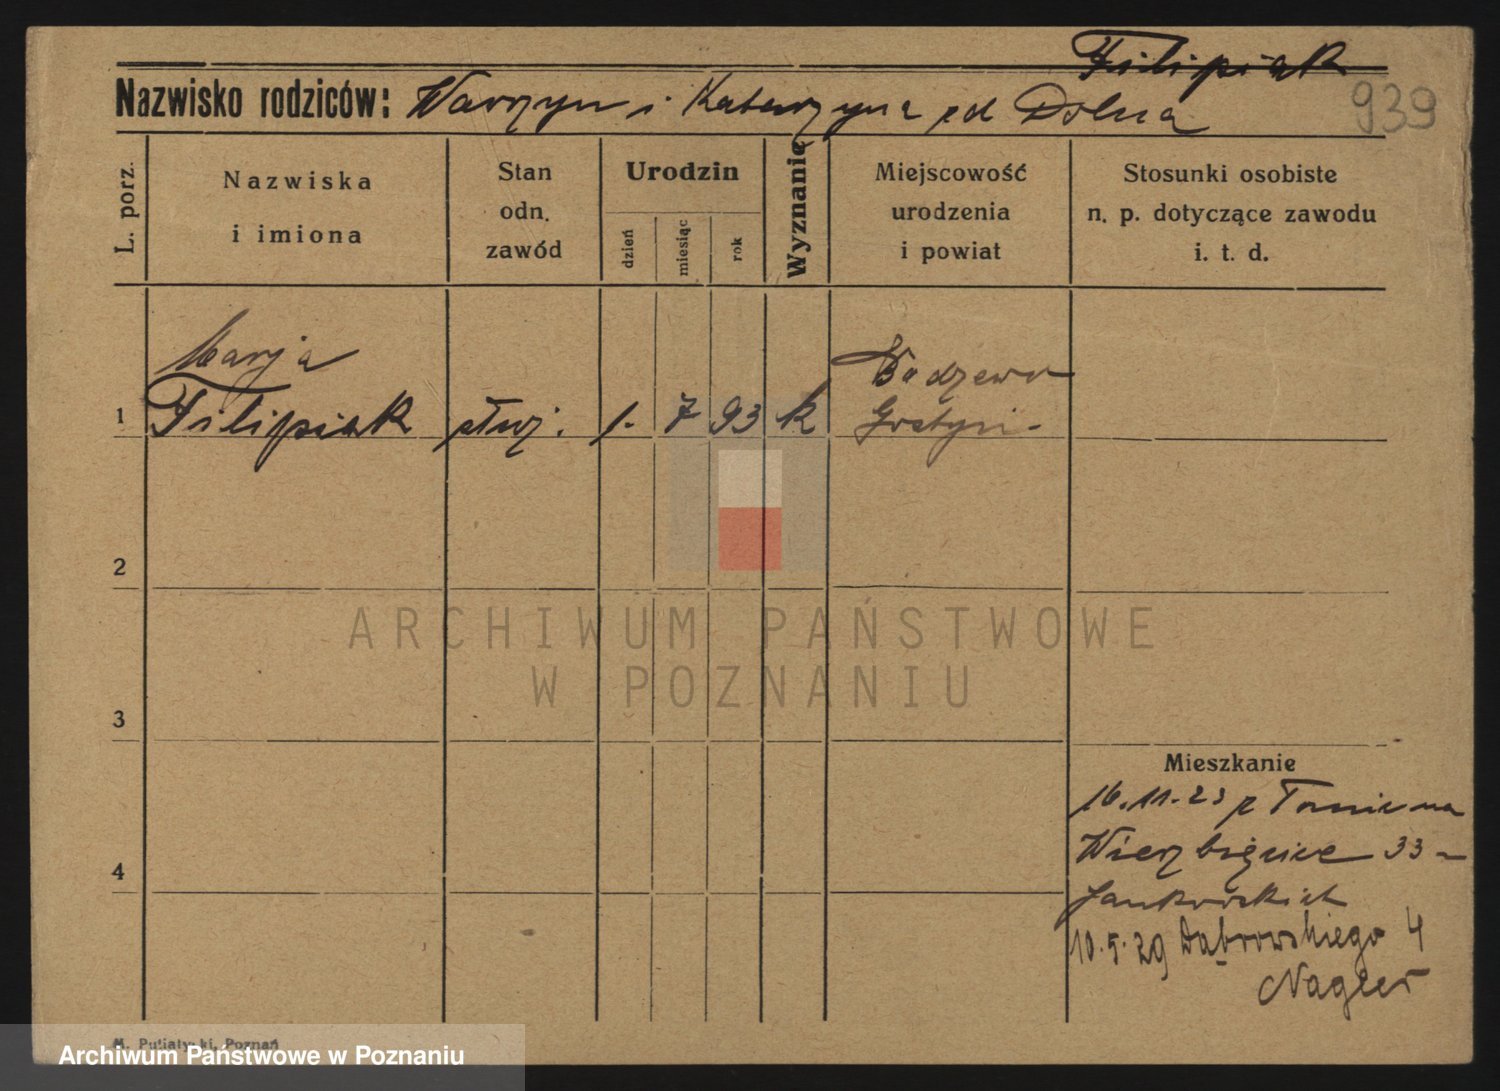 Filipiak
Nazwisko rodziców: Warzyn i Katarzyna
939
L. porz.
Nazwiska
i imiona
Stan
odn.
zawód
Urodzin
dzień
miesiąc
rok
Wyznanie
Miejscowość
urodzenia
i powiat
Stosunki osobiste
n. p. dotyczące zawodu
i. t. d.
Marja
1 Filipiak służ. 1. 7 93 k
Gostyń
2
3
4
ARCHIWUM PAŃSTWOWE
W POZNANIU
Mieszkanie
16.11.23 z
Wierzbięcice 33
Jankowskich
10.5.29 Dąbrowskiego 4
Nagler
M. Putiatycki, Poznań
Archiwum Państwowe w Poznaniu